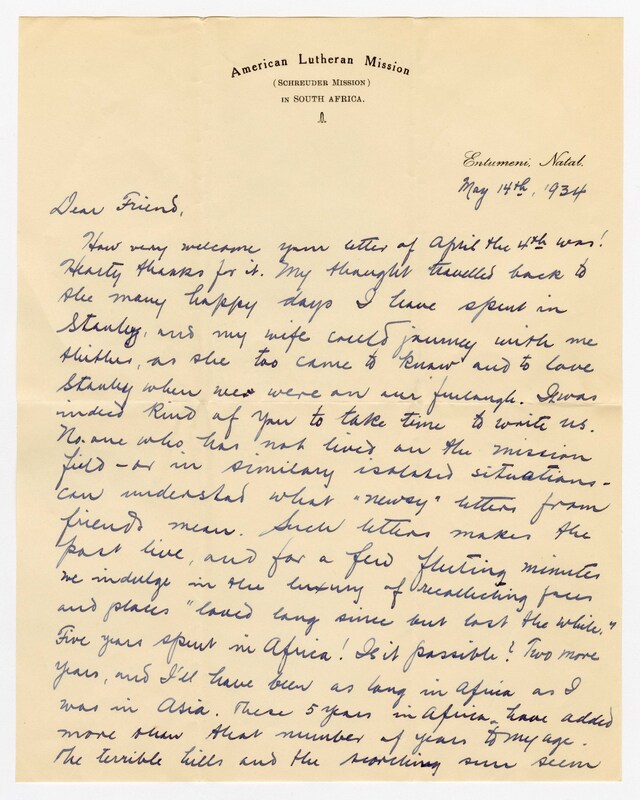 American Lutheran Mission
(SCHREUDER MISSION)
IN SOUTH AFRICA.
Entumeni, Natal.
May 14th, 1934
Dear Friend,
How very welcome your letter of April the 4th was!
Hearty thanks for it. My thought travelled back to
the many happy days I have spent in
Stanley, and my wife could journey with me
thither, as she too came to know and to love
Stanley when we were on our furlough. It was
indeed kind of you to take time to write us.
No one who has not lived on the mission
field – or in similary isolated situations –
can understad what "newsy" letters from
friends mean. Such letters makes the
past live, and for a few fleeting minutes
we indulge in the luxury of recollecting faces
and places "loved long since but lost the while."
Five years spent in Africa! Is it possible? Two more
years, and I'll have been as long in Africa as I
was in Asia. These 5 years in Africa have added
more than that number of years to my age.
The terrible hills and the scorching sun seem